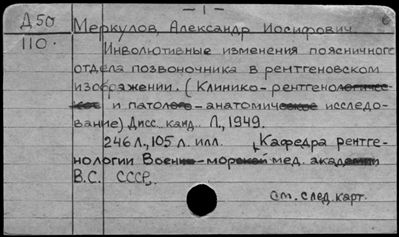 — 1 —
Д 50
110.
Меркулов, Александр Иосифович.
Инволютивные изменения поясничного
отдела позвоночника в рентгеновском
изображении. (Клинико-рентгенологичес-
кое и патолого-анатомическое исследо-
вание) Дисс. канд. Л., 1949.
246 л., 105 л. илл. Кафедра рентге-
нологии Военно-морской мед. академии
В.С. СССР.
См. след. карт.